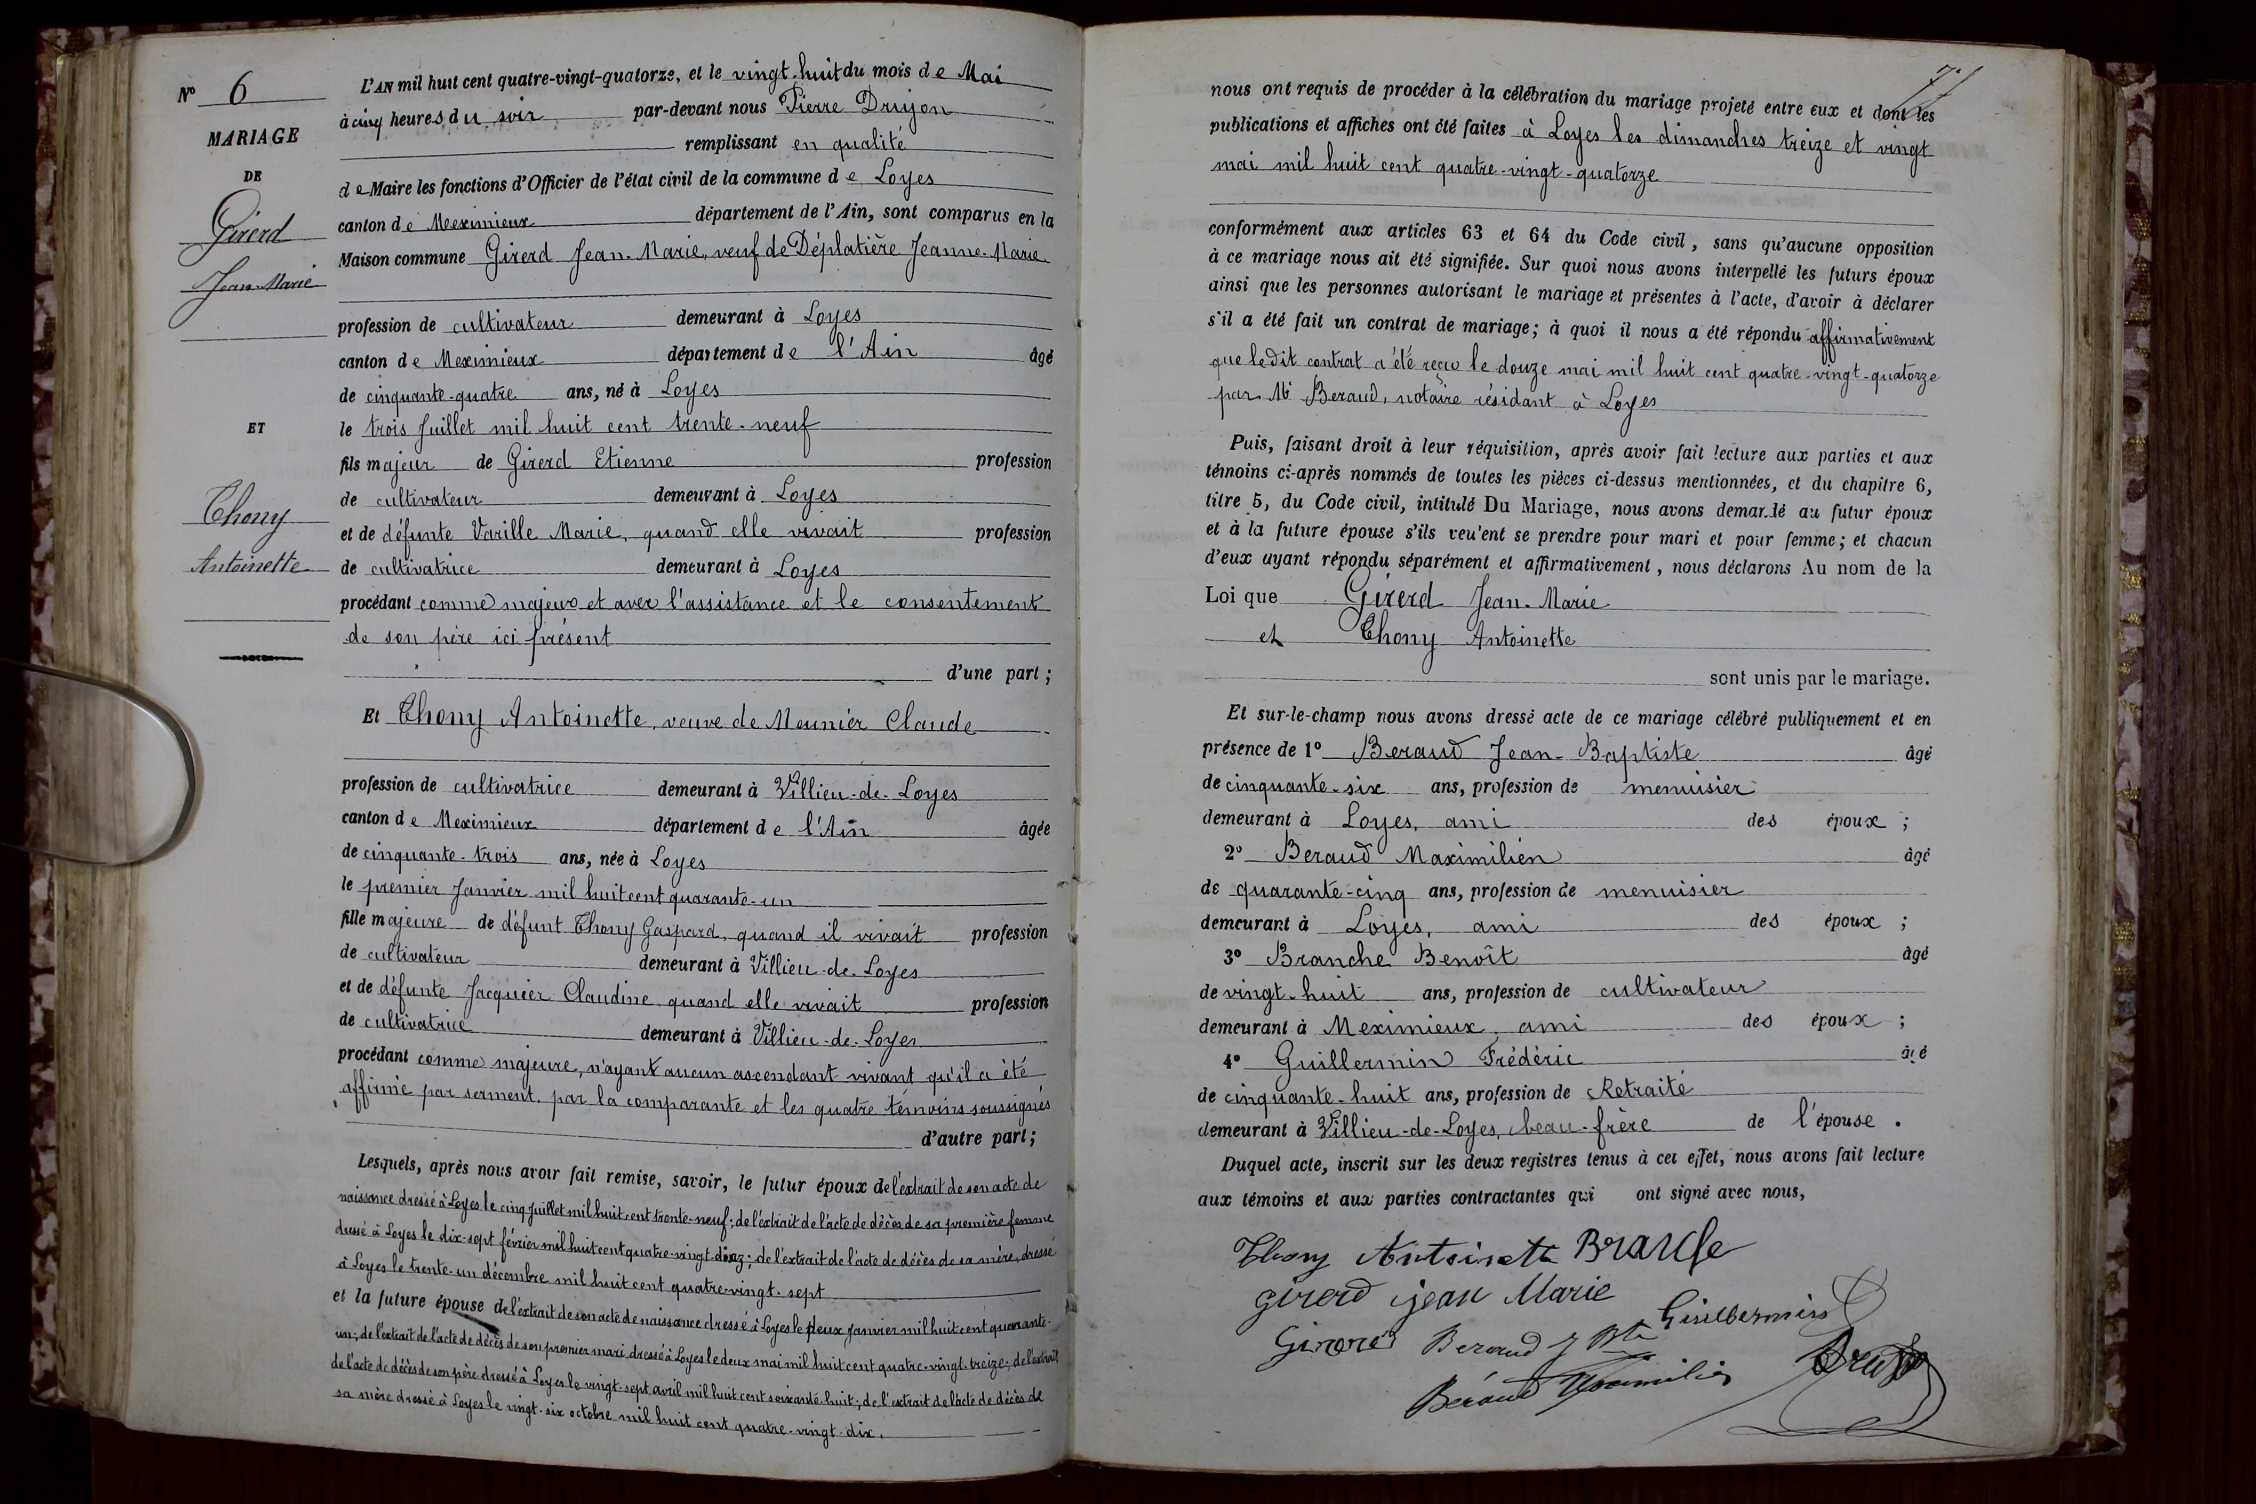 N° 6
MARIAGE
DE
Girerd
Jean-Marie
ET
Thony
Antoinette
L'AN mil huit cent quatre-vingt-quatorze, et le vingt-huit du mois de Mai
à cinq heures du soir par-devant nous Pierre Drujon
remplissant en qualité
de Maire les fonctions d'Officier de l'état civil de la commune de Loyes
canton de Meximieux département de l'Ain, sont comparus en la
Maison commune Girerd Jean-Marie, veuf de Déplatière Jeanne-Marie
profession de cultivateur demeurant à Loyes
canton de Meximieux département de l'Ain âgé
de cinquante-quatre ans, né à Loyes
le trois Juillet mil huit cent trente-neuf
fils majeur de Girerd Etienne profession
de cultivateur demeurant à Loyes
et de défunte Varille Marie, quand elle vivait profession
de cultivatrice demeurant à Loyes
procédant comme majeur et avec l'assistance et le consentement
de son père ici présent
d'une part ;
Et Thony Antoinette, veuve de Meunier Claude
profession de cultivatrice demeurant à Villieu-de-Loyes
canton de Meximieux département de l'Ain âgée
de cinquante-trois ans, née à Loyes
le premier Janvier mil huit cent quarante-un
fille majeure de défunt Thony Gaspard, quand il vivait profession
de cultivateur demeurant à Villieu-de-Loyes
et de défunte Jacquier Claudine quand elle vivait profession
de cultivatrice demeurant à Villieu-de-Loyes
procédant comme majeure, n'ayant aucun ascendant vivant qu'il a été
affirmé par serment, par la comparante et les quatre témoins soussignés
d'autre part ;
Lesquels, après nous avoir fait remise, savoir, le futur époux de l'extrait de son acte de
naissance dressé à Loyes le cinq Juillet mil huit cent trente-neuf ; de l'extrait de l'acte de décès de sa première femme
dressé à Loyes le dix-sept février mil huit cent quatre-vingt-douz ; de l'extrait de l'acte de décès de sa mère, dressé
à Loyes le trente-un décembre mil huit cent quatre-vingt-sept
et la future épouse de l'extrait de son acte de naissance dressé à Loyes le deux Janvier mil huit cent quarante-
un ; de l'extrait de l'acte de décès de son premier mari dressé à Loyes le deux mai mil huit cent quatre-vingt-treize ; de l'extrait
de l'acte de décès de son père dressé à Loyes le vingt-sept avril mil huit cent soixante-huit ; de l'extrait de l'acte de décès de
sa mère dressé à Loyes le vingt-six octobre mil huit cent quatre-vingt-dix.
nous ont requis de procéder à la célébration du mariage projeté entre eux et dont les
publications et affiches ont été faites à Loyes les dimanches treize et vingt
mai mil huit cent quatre-vingt-quatorze
conformément aux articles 63 et 64 du Code civil, sans qu'aucune opposition
à ce mariage nous ait été signifiée. Sur quoi nous avons interpellé les futurs époux
ainsi que les personnes autorisant le mariage et présentes à l'acte, d'avoir à déclarer
s'il a été fait un contrat de mariage ; à quoi il nous a été répondu affirmativement
que ledit contrat a été reçu le douze mai mil huit cent quatre-vingt-quatorze
par Me Beraud, notaire résidant à Loyes
Puis, faisant droit à leur réquisition, après avoir fait lecture aux parties et aux
témoins ci-après nommés de toutes les pièces ci-dessus mentionnées, et du chapitre 6,
titre 5, du Code civil, intitulé Du Mariage, nous avons demandé au futur époux
et à la future épouse s'ils veulent se prendre pour mari et pour femme ; et chacun
d'eux ayant répondu séparément et affirmativement, nous déclarons Au nom de la
Loi que Girerd Jean-Marie
et Thony Antoinette
sont unis par le mariage.
Et sur-le-champ nous avons dressé acte de ce mariage célébré publiquement et en
présence de 1° Beraud Jean-Baptiste âgé
de cinquante-six ans, profession de menuisier
demeurant à Loyes, ami des époux ;
2° Beraud Maximilien âgé
de quarante-cinq ans, profession de menuisier
demeurant à Loyes, ami des époux ;
3° Branche Benoît âgé
de vingt-huit ans, profession de cultivateur
demeurant à Meximieux, ami des époux ;
4° Guillermin Frédéric âgé
de cinquante-huit ans, profession de Retraité
demeurant à Villieu-de-Loyes, beau-frère de l'épouse.
Duquel acte, inscrit sur les deux registres tenus à cet effet, nous avons fait lecture
aux témoins et aux parties contractantes qui ont signé avec nous,
Thony Antoinette Branche
girerd jean Marie
Guillermin
Girerd Beraud J Bte
Béraud Maximilien